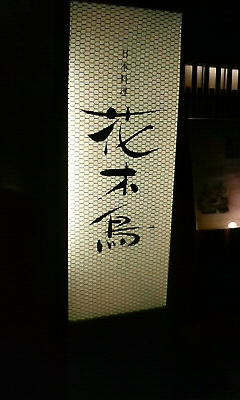 日本料理
花木鳥